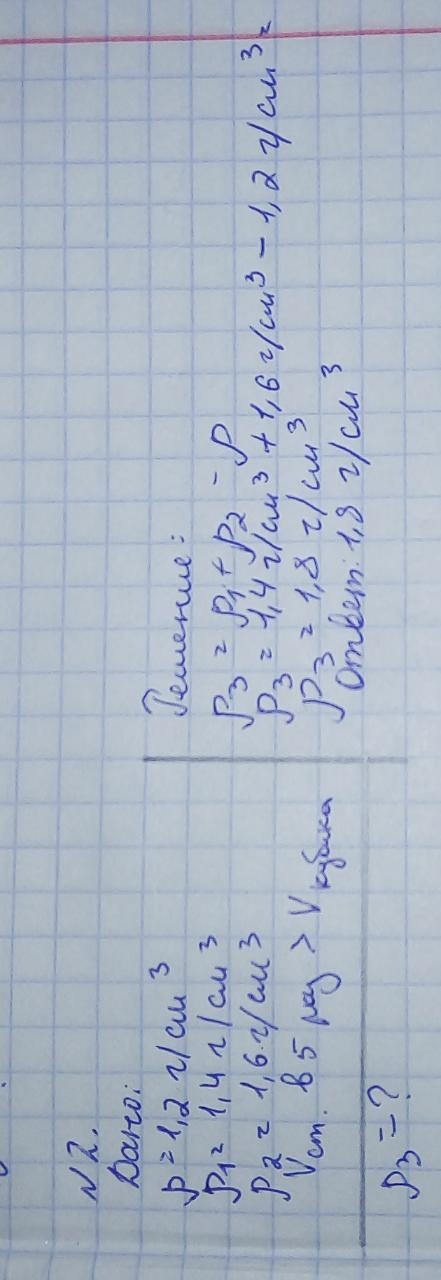 N2.
Дано:
ρ = 1,2 г/см³
ρ₁ = 1,4 г/см³
ρ₂ = 1,6 г/см³
Vст. в 5 раз > Vкубика
ρ₃ = ?
Решение:
ρ₃ = ρ₁ + ρ₂ - ρ
ρ₃ = 1,4 г/см³ + 1,6 г/см³ - 1,2 г/см³ =
ρ₃ = 1,8 г/см³
Ответ: 1,8 г/см³